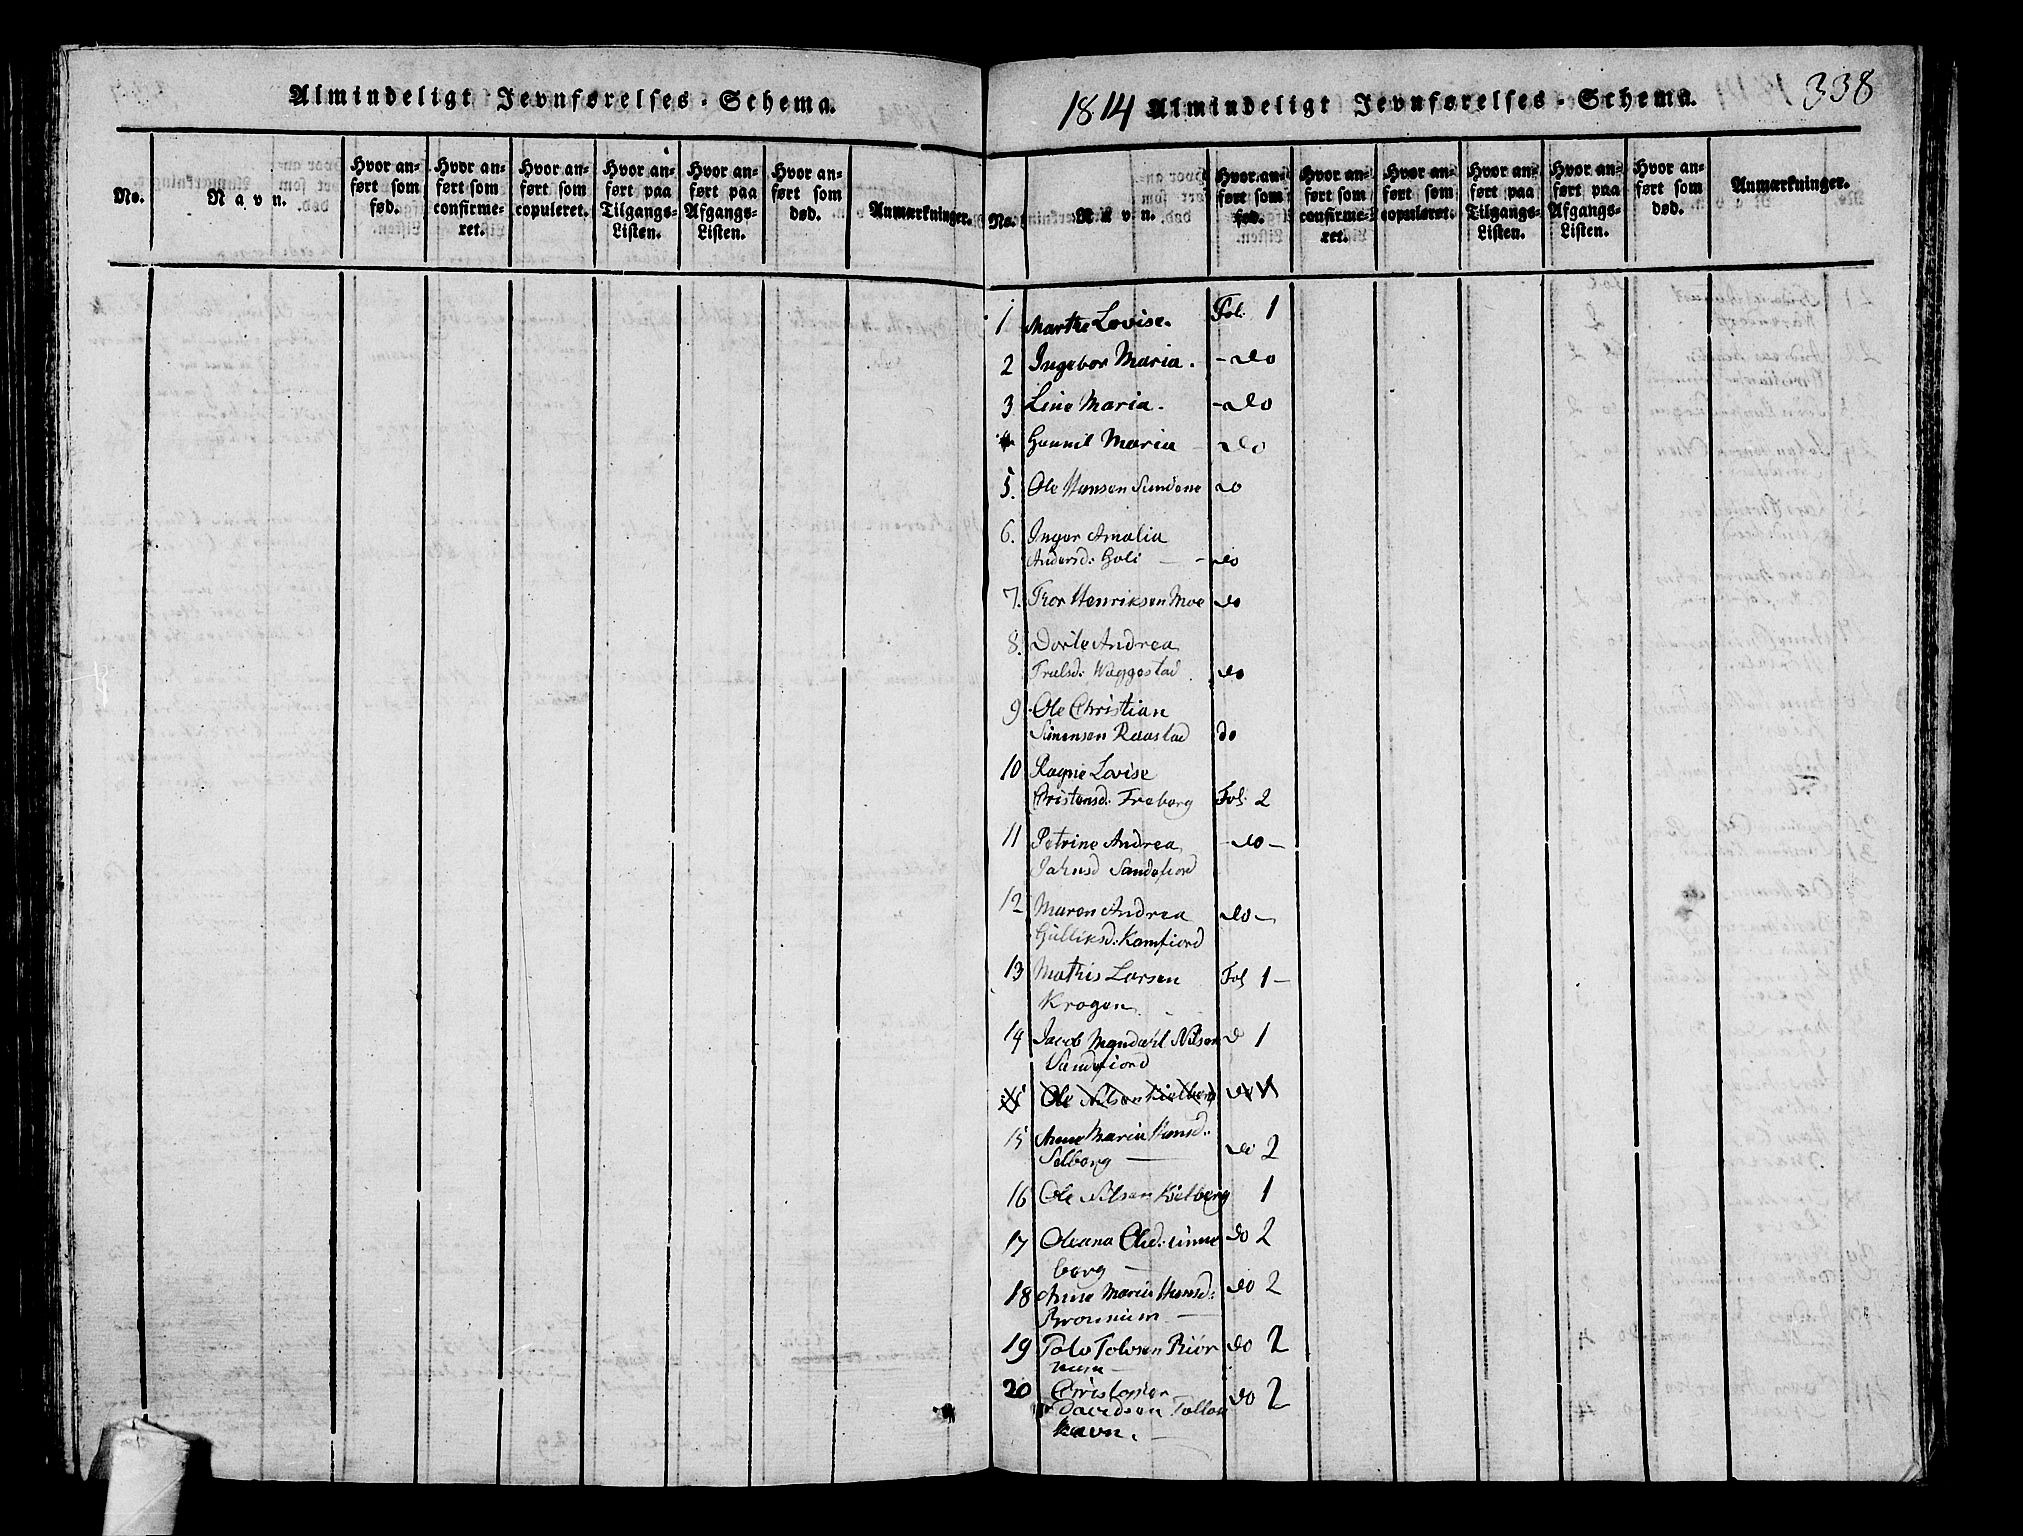 Almindeligt Jevnførelses-Schema.
No.
Navn.
Hvor an-
ført som
fød.
Hvor an-
ført som
confirme-
ret.
Hvor an-
ført som
copuleret.
Hvor an-
ført paa
Tilgangs-
Listen.
Hvor an-
ført paa
Afgangs-
Listen.
Hvor an-
ført som
død.
Anmærkninger.
1814 Almindeligt Jevnførelses-Schema. 338
No.
Navn.
Hvor an-
ført som
fød.
Hvor an-
ført som
confirme-
ret.
Hvor an-
ført som
copuleret.
Hvor an-
ført paa
Tilgangs-
Listen.
Hvor an-
ført paa
Afgangs-
Listen.
Hvor an-
ført som
død.
Anmærkninger.
1 Marthe Lovise. Fol. 1
2 Ingebor Maria. - do
3 Line Maria. - do
4 Gunnil Maria - do
5. Ole Hansen Sundene do
6. Inger Amalia
Andersd: Holi - - do
7. Thor Henriksen Moe do
8. Dorte Andrea
Trulsd: Wæggestad do
9 Ole Christian
Simensen Raastad do
10 Ragne Lovise
Christensd: Freberg Fol: 2
11 Petrine Andrea - do -
Jahnsd Sandefiord
12 Maren Andrea do -
Gulliksd: Kamfiord
13 Mathis Larsen Fol 1 -
Krogen
14 Jacob Nilsen d 1
Sandefiord
15 Ole Nilsen Kielberg do 1
15 Anne Maria Hansd.
Solberg - do 2
16 Ole Nilsen Kielberg 1
17 Oleana Olsd: Linne do 2
berg -
18 Anne Maria Hansd: do 2
-
19 Tolv Tolvsen Riør do 2
num -
20 Christopher
Davidsen Tollos do 2
havn. -